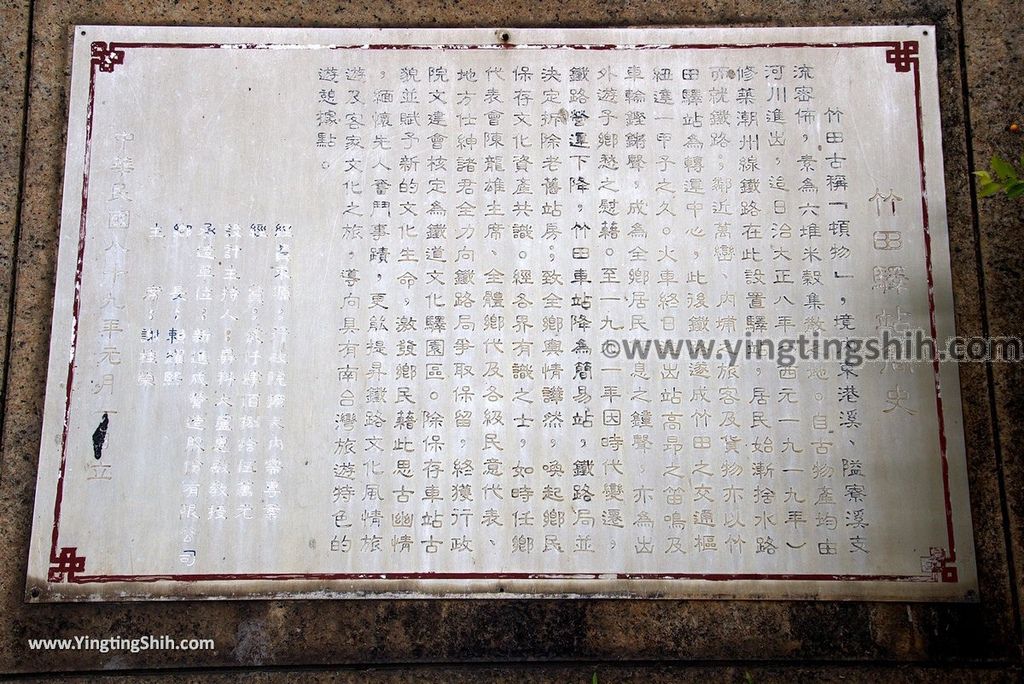 竹田驛站簡史
竹田古稱「頓物」，境內東港溪、隘寮溪支
流密佈，素為六堆米穀集散地。自古物產均由
河川進出，迨日治大正八年（西元一九一九年）
修築潮州線鐵路在此設置驛站，居民始漸捨水路
而就鐵路。鄰近萬巒、內埔之旅客及貨物亦以竹
田驛站為轉運中心，此後鐵路遂成竹田之交通樞
紐達一甲子之久。火車終日進出站高昂之笛鳴及
車輪鏗鏘聲，成為全鄉居民作息之鐘聲，亦為出
外遊子鄉愁之慰藉。至一九九一年因時代變遷，
鐵路營運下降，竹田車站降為簡易站，鐵路局並
決定拆除老舊站房，致全鄉輿情譁然，喚起鄉民
保存文化資產共識。經各界有識之士，如時任鄉
代表會陳龍雄主席、全體鄉代及各級民意代表、
地方仕紳諸君全力向鐵路局爭取保留，終獲行政
院文建會核定為鐵道文化驛園區。除保存車站古
貌並賦予新的文化生命，激發鄉民藉此思古幽情
，緬懷先人奮鬥事蹟，更能提昇鐵路文化風情旅
遊及客家文化之旅，導向具有南台灣旅遊特色的
遊憩據點。
經費來源：行政院擴大內需專案
設計主持人：
承造單位：新進成營造股份有限公司
鄉長：
主席：
中華民國八十九年元月 立
©www.yingtingshih.com
www.YingtingShih.com